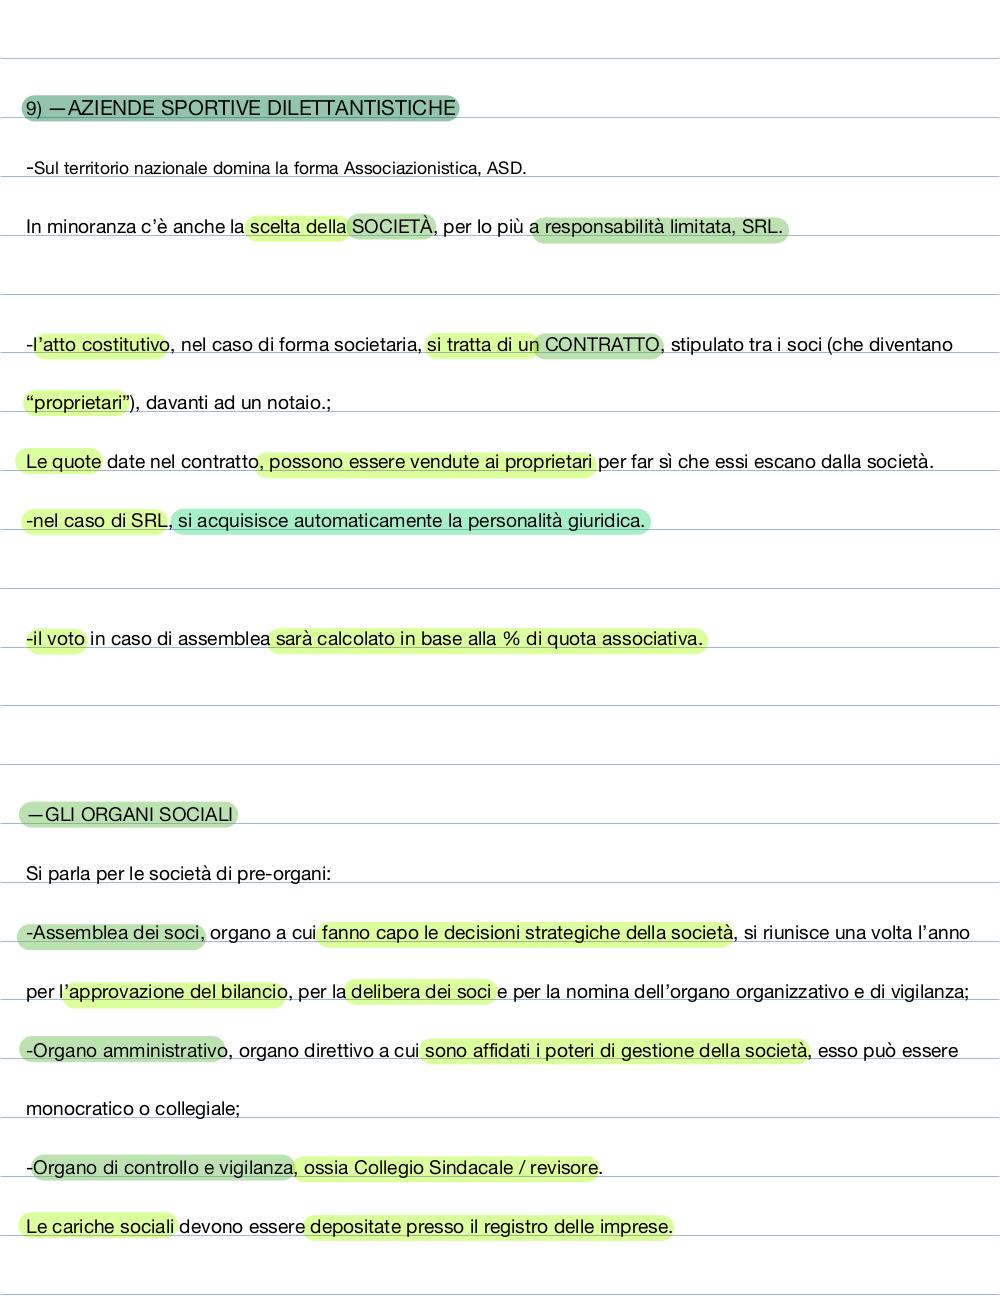 9) —AZIENDE SPORTIVE DILETTANTISTICHE
-Sul territorio nazionale domina la forma Associazionistica, ASD.
In minoranza c’è anche la scelta della SOCIETÀ, per lo più a responsabilità limitata, SRL.
-l’atto costitutivo, nel caso di forma societaria, si tratta di un CONTRATTO, stipulato tra i soci (che diventano
“proprietari”), davanti ad un notaio.;
Le quote date nel contratto, possono essere vendute ai proprietari per far sì che essi escano dalla società.
-nel caso di SRL, si acquisisce automaticamente la personalità giuridica.
-il voto in caso di assemblea sarà calcolato in base alla % di quota associativa.
—GLI ORGANI SOCIALI
Si parla per le società di pre-organi:
-Assemblea dei soci, organo a cui fanno capo le decisioni strategiche della società, si riunisce una volta l’anno
per l’approvazione del bilancio, per la delibera dei soci e per la nomina dell’organo organizzativo e di vigilanza;
-Organo amministrativo, organo direttivo a cui sono affidati i poteri di gestione della società, esso può essere
monocratico o collegiale;
-Organo di controllo e vigilanza, ossia Collegio Sindacale / revisore.
Le cariche sociali devono essere depositate presso il registro delle imprese.